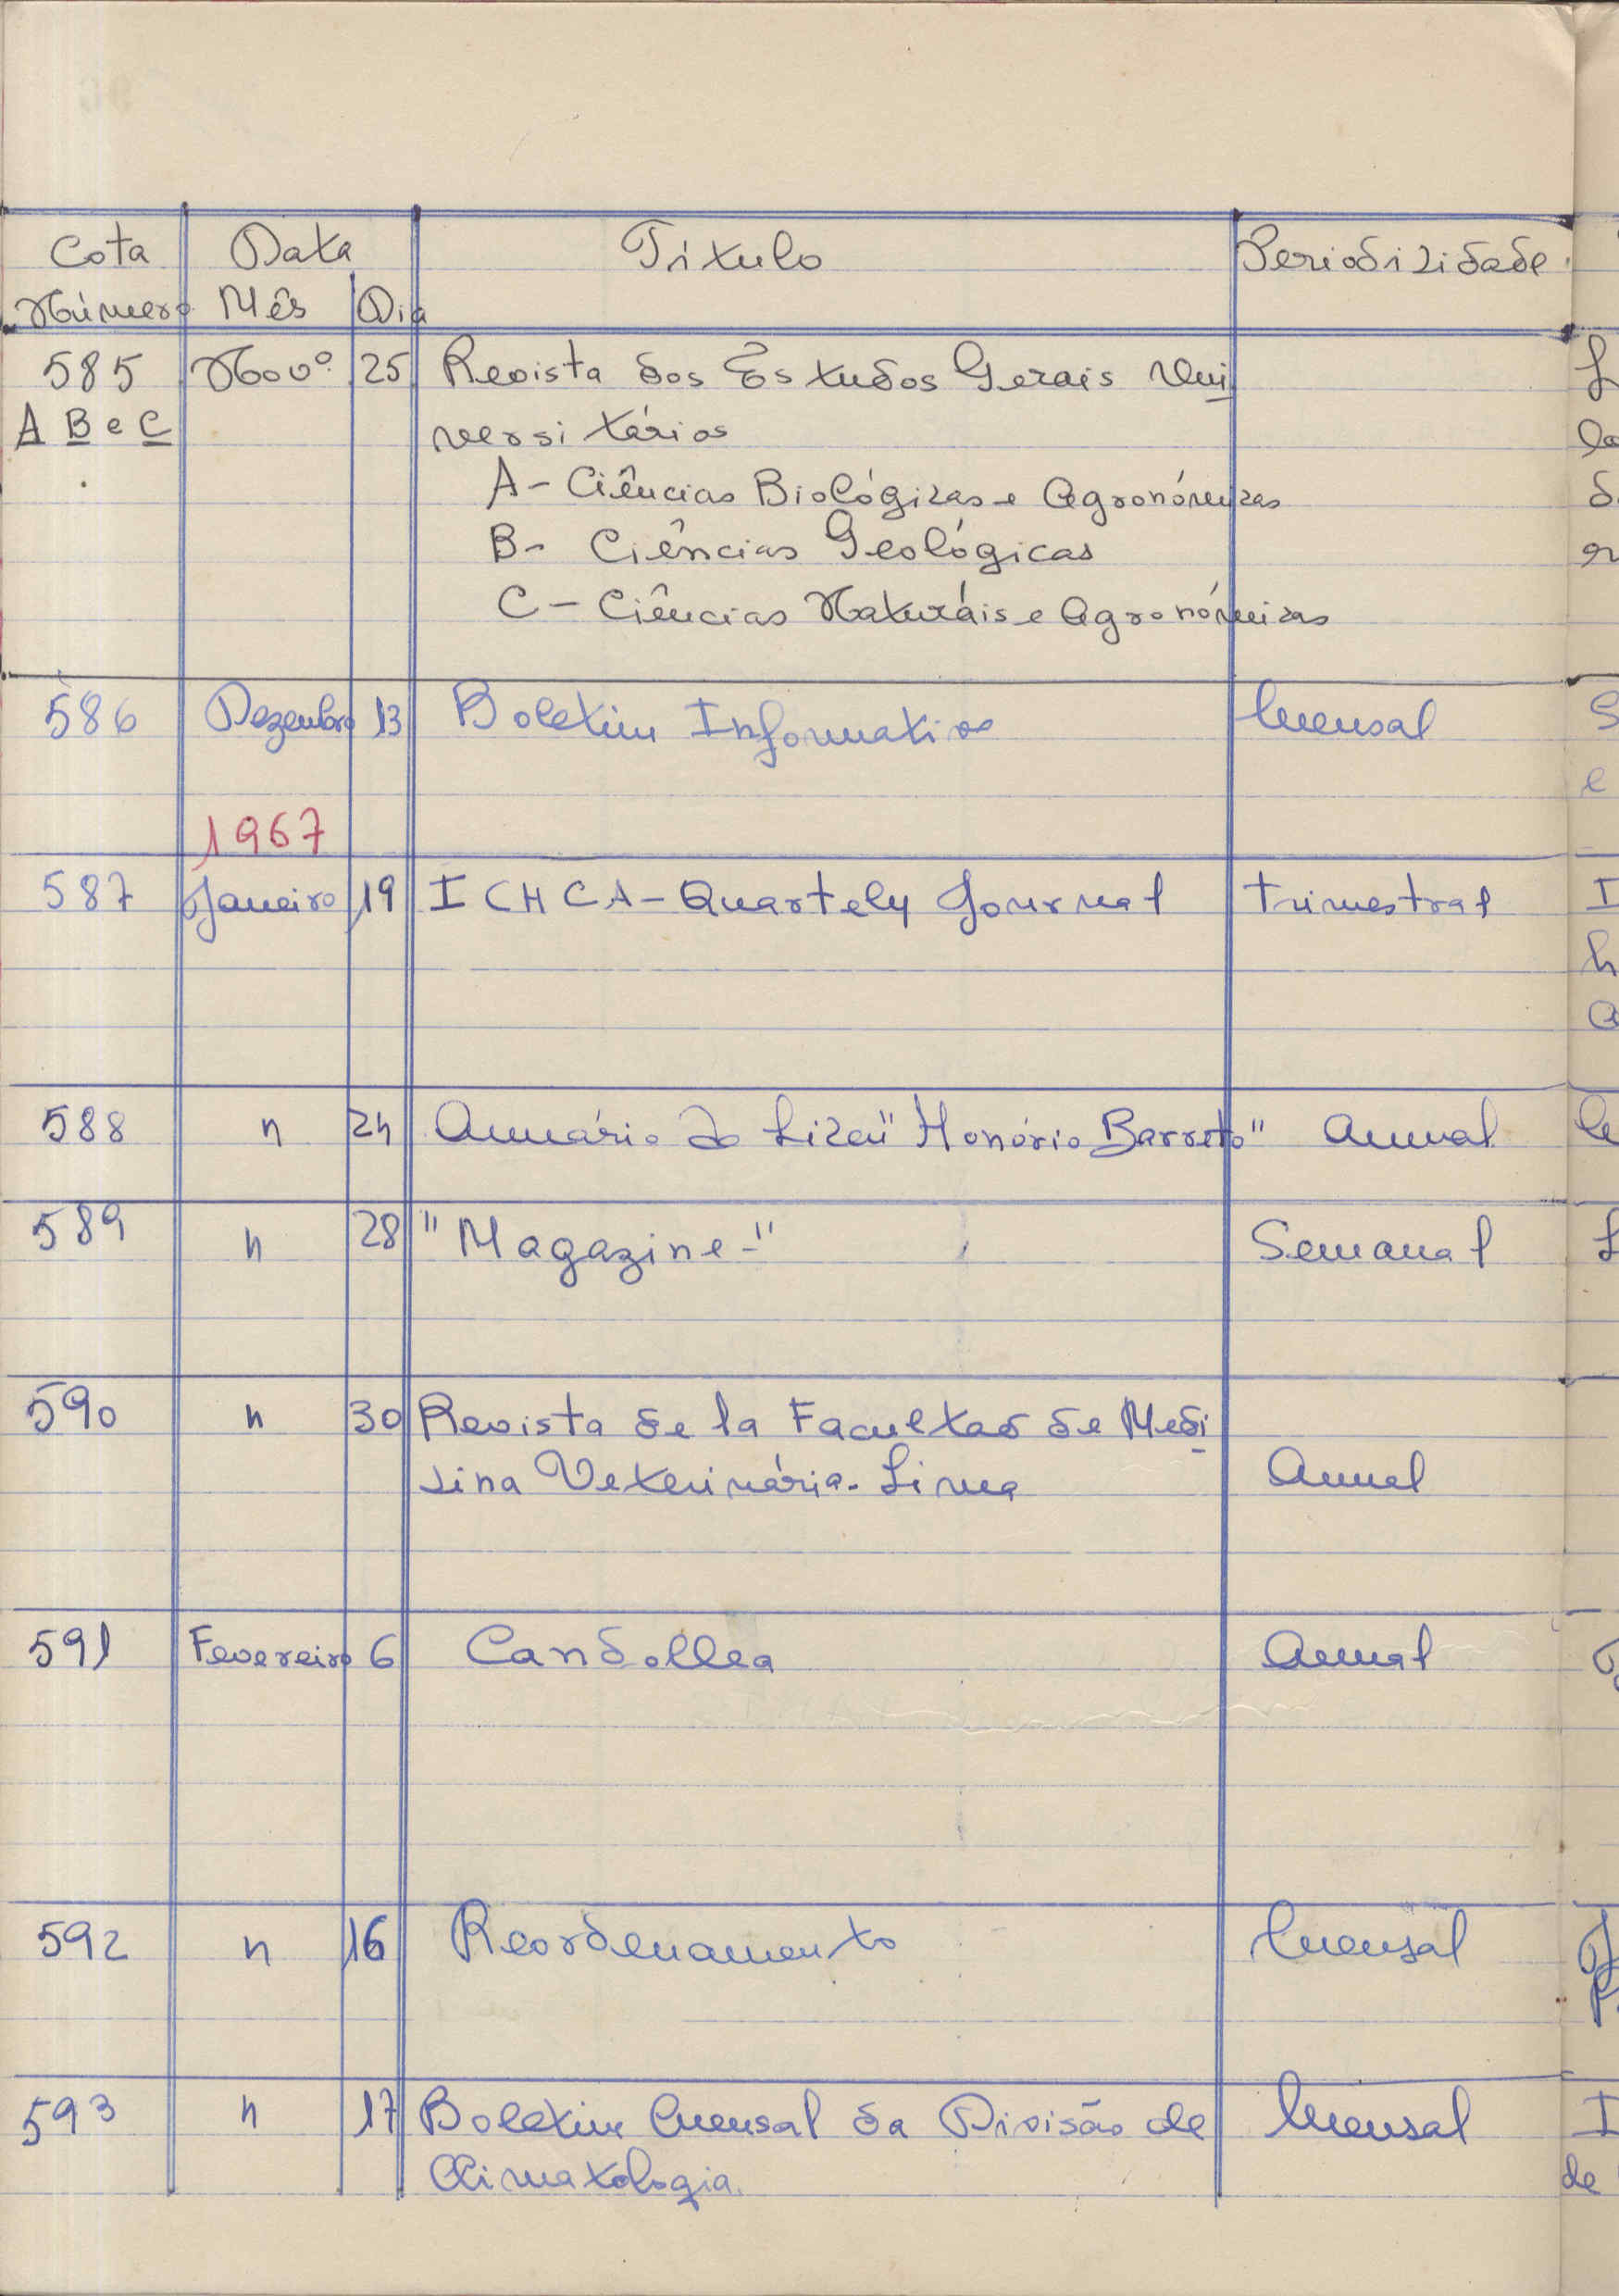 Cota Data Título Periodicidade
Número Mês Dia
585 Novº 25 Revista dos Estudos Gerais Uni
A B e C versitários
A - Ciências Biológicas e Agronómicas
B - Ciências Geológicas
C - Ciências Naturáis e Agronómicas
586 Dezembro 13 Boletim Informativo Mensal
1967
587 Janeiro 19 I C H C A - Quartely Journal Trimestral
588 " 24 Anuário do Liceu "Honório Barreto" Anual
589 " 28 "Magazine-" Semanal
590 " 30 Revista de la Facultad de Medi
cina Veterinária. Lima Anual
591 Fevereiro 6 Candollea Anual
592 " 16 Reordenamento Mensal
593 " 17 Boletim Mensal da Divisão de Mensal
Climatologia.